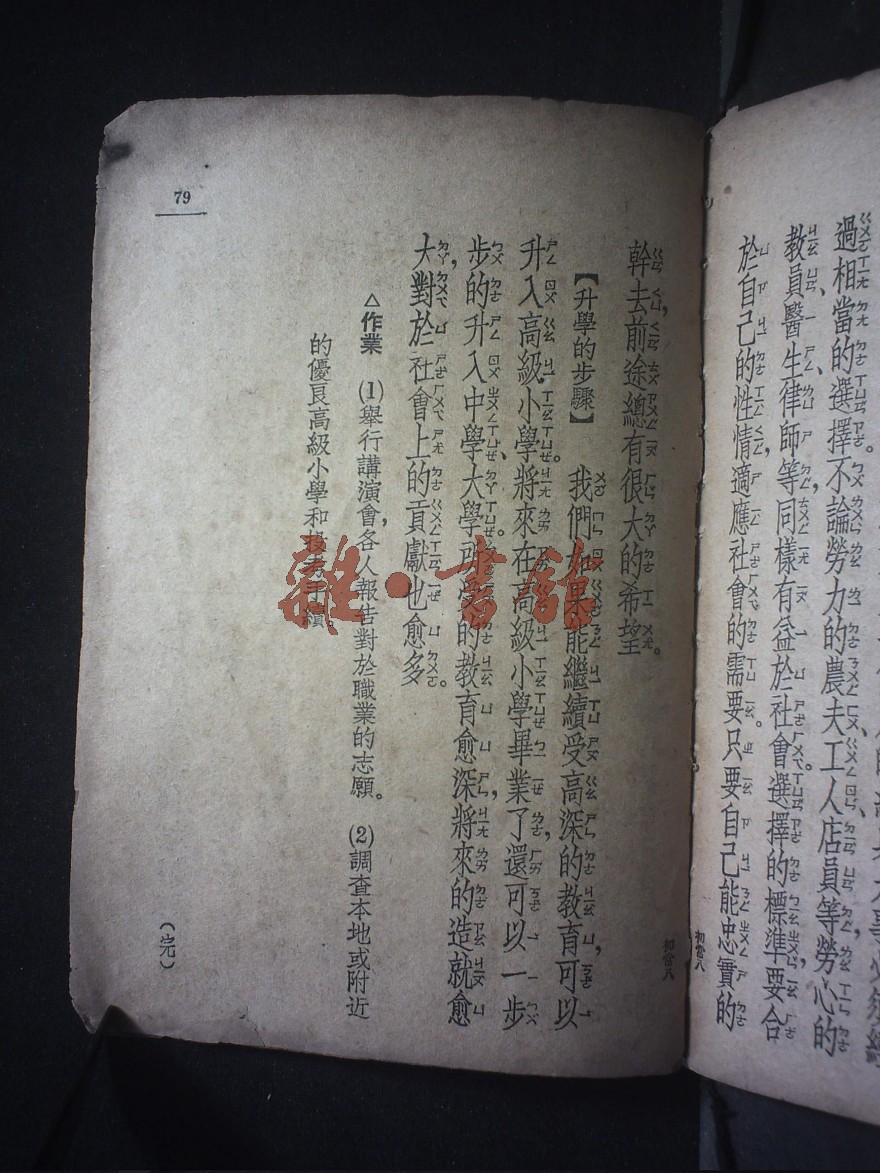 過相當的選擇。不論勞力的農夫、工人、店員等，勞心的
教員、醫生、律師等，同樣有益於社會。選擇的標準，要合
於自己的性情，適應社會的需要。只要自己能忠實的
初常八
初常八
幹去，前途總有很大的希望。
【升學的步驟】 我們如果能繼續受高深的教育，可以
升入高級小學。將來在高級小學畢業了，還可以一步
步的升入中學、大學。所受的教育愈深，將來的造就愈
大，對於社會上的貢獻也愈多。
△作業 (1)舉行講演會，各人報告對於職業的志願。 (2)調查本地或附近
的優良高級小學和投考手續。
(完)
79
雜·書館